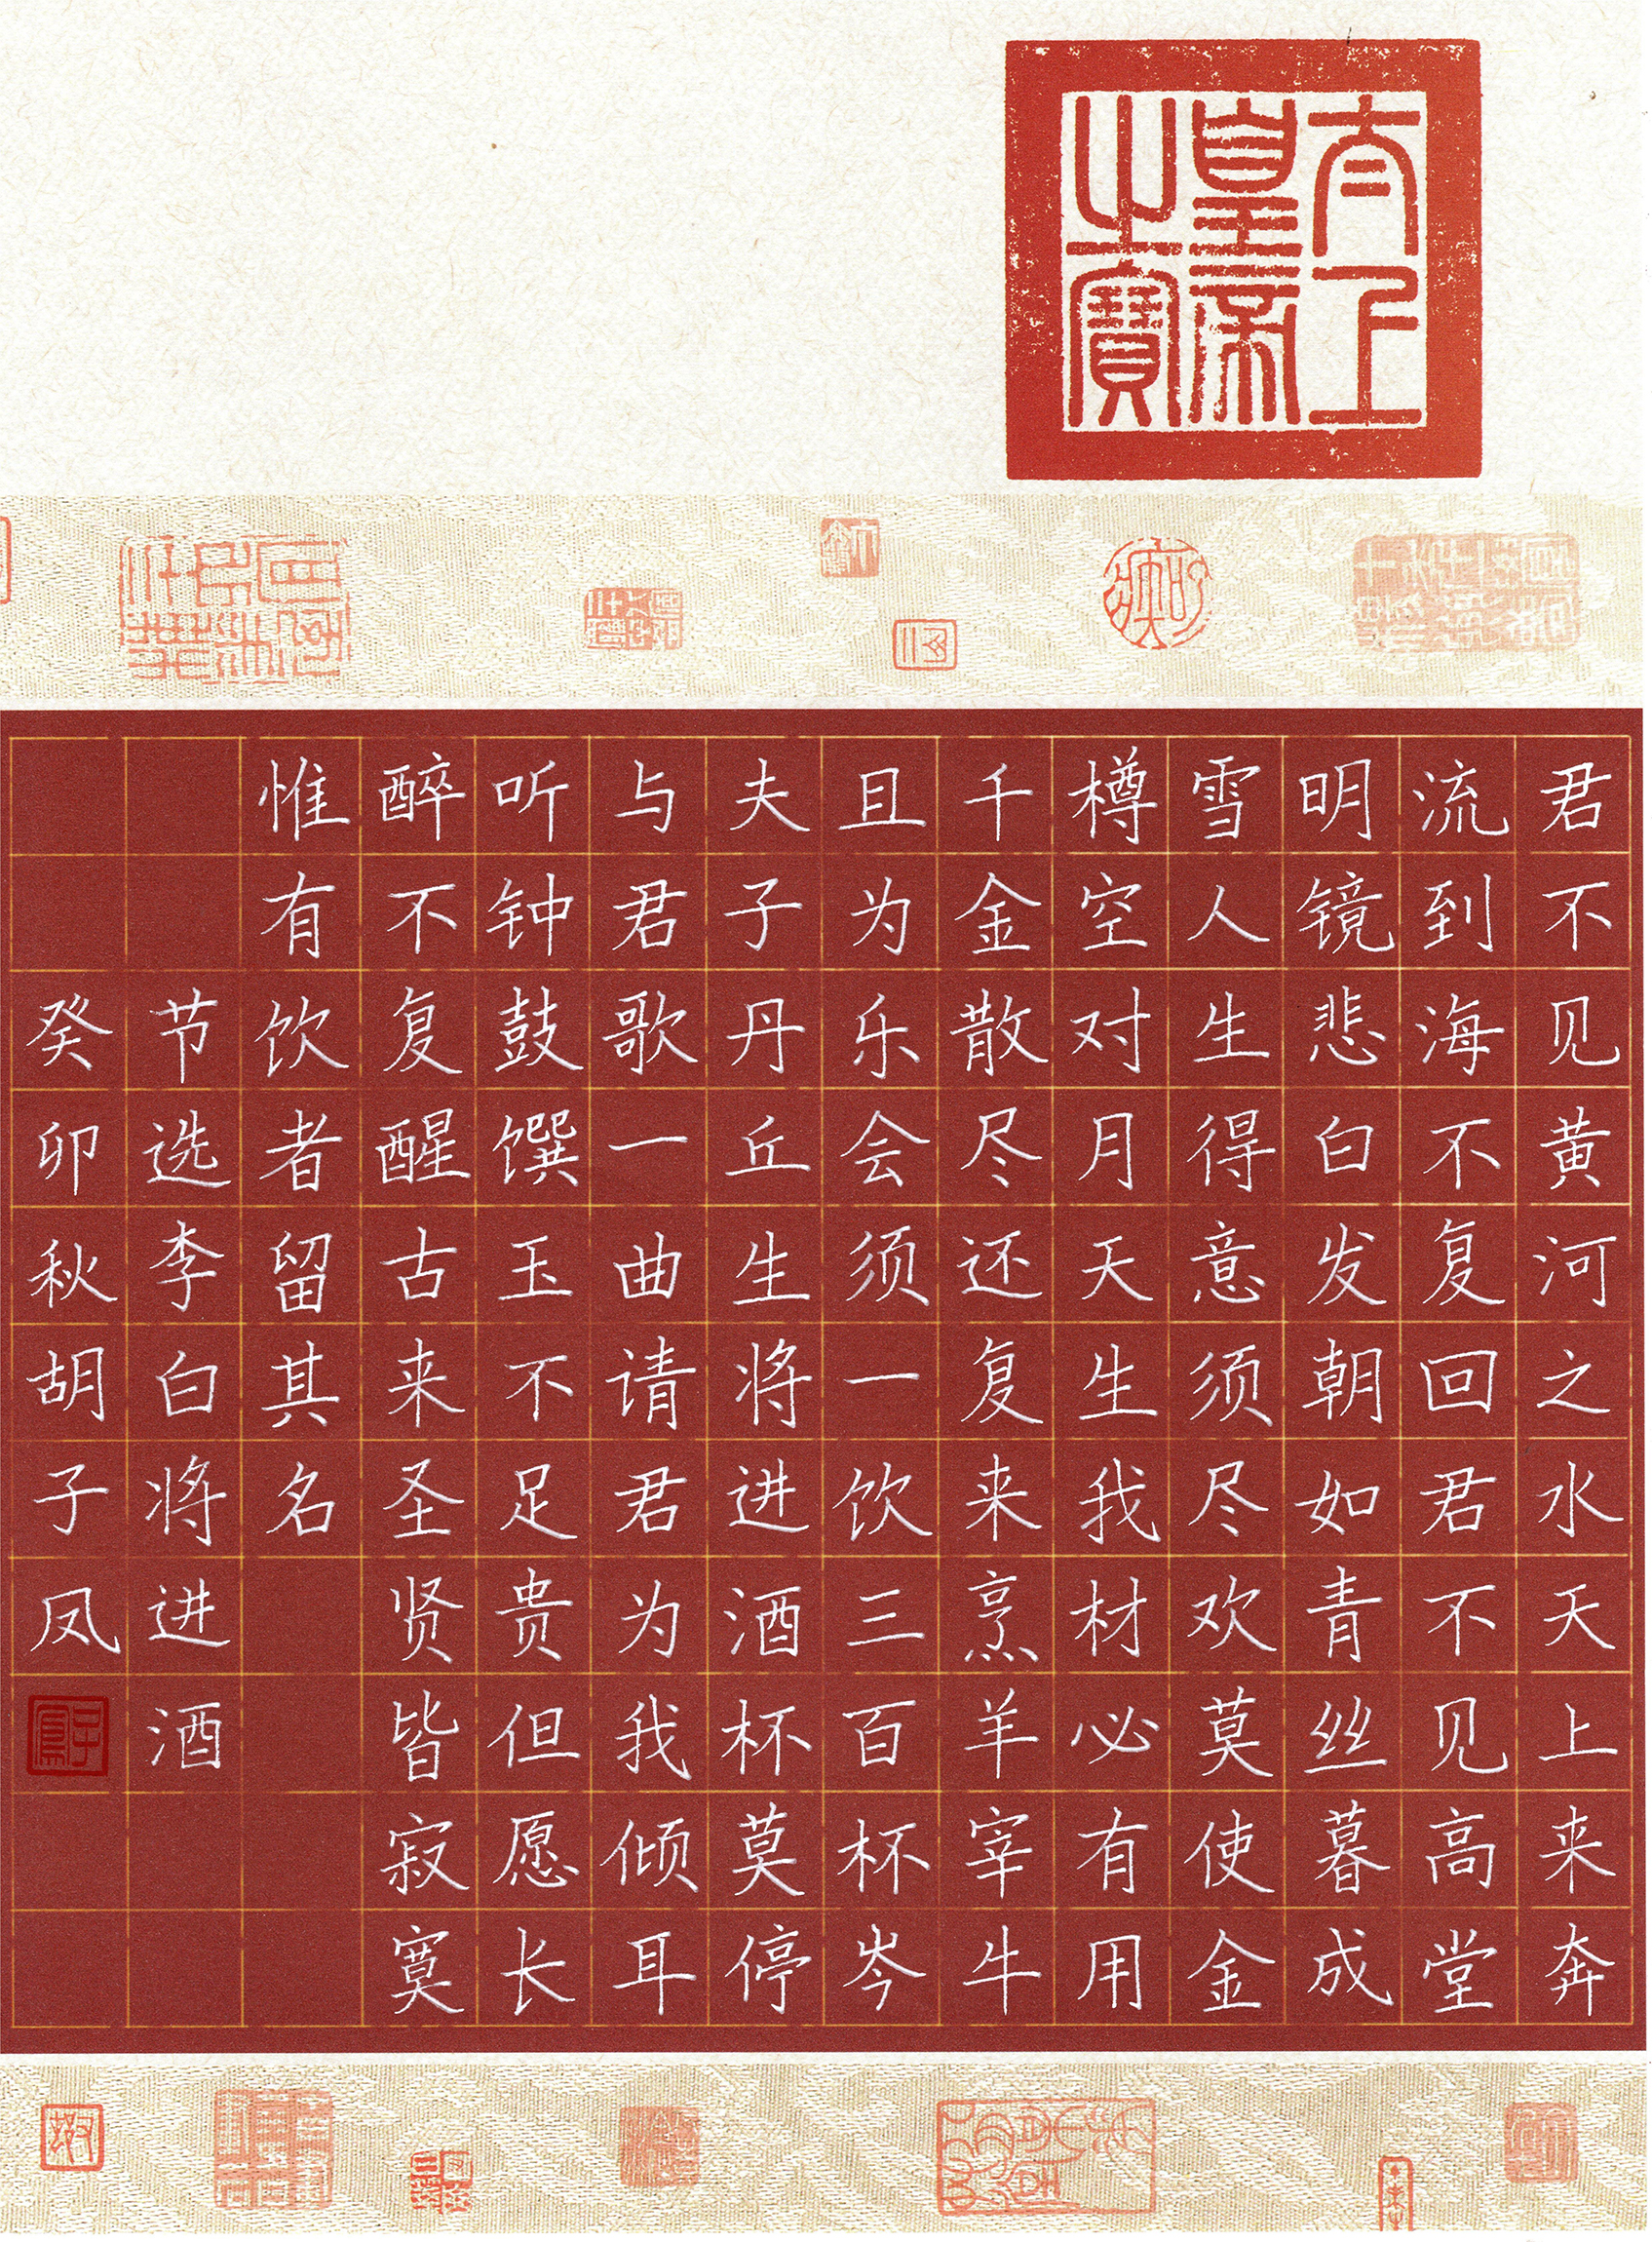 太上
皇帝
之寶
君不见黄河之水天上来奔
流到海不复回君不见高堂
明镜悲白发朝如青丝暮成
雪人生得意须尽欢莫使金
樽空对月天生我材必有用
千金散尽还复来烹羊宰牛
且为乐会须一饮三百杯岑
夫子丹丘生将进酒杯莫停
与君歌一曲请君为我倾耳
听钟鼓馔玉不足贵但愿长
醉不复醒古来圣贤皆寂寞
惟有饮者留其名
节选李白将进酒
癸卯秋胡子凤
子鳳